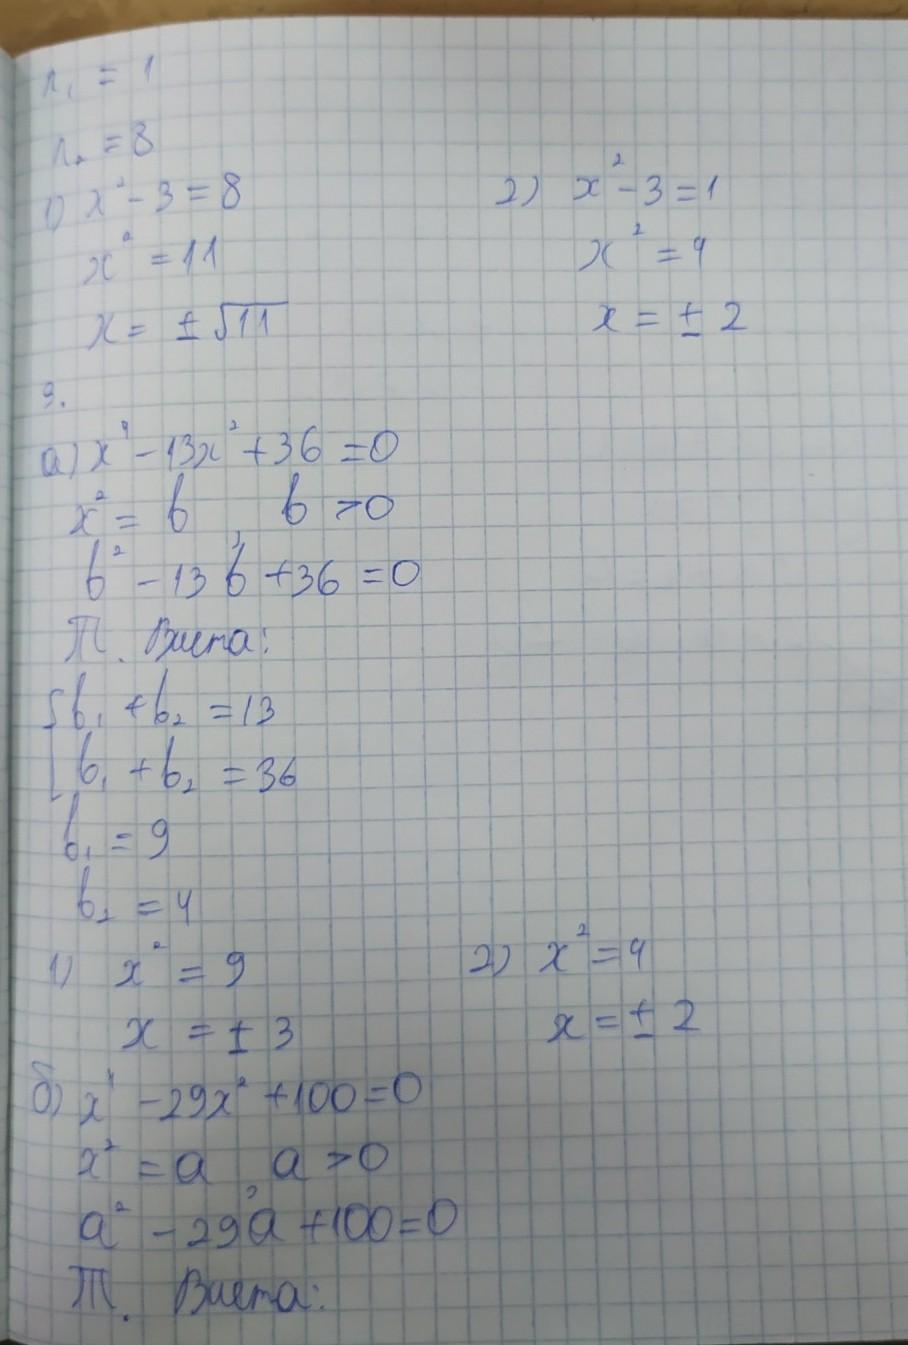 x₁ = 1
x₂ = 8
1) x² - 3 = 8
2) x² - 3 = 1
x² = 11
x² = 4
x = ± √11
x = ± 2
3.
а) x⁴ - 13x² + 36 = 0
x² = b, b > 0
b² - 13b + 36 = 0
Т. Виета:
{ b₁ + b₂ = 13
b₁ + b₂ = 36
b₁ = 9
b₂ = 4
1) x² = 9
2) x² = 4
x = ± 3
x = ± 2
б) x⁴ - 29x² + 100 = 0
x² = a, a > 0
a² - 29a + 100 = 0
Т. Виета: